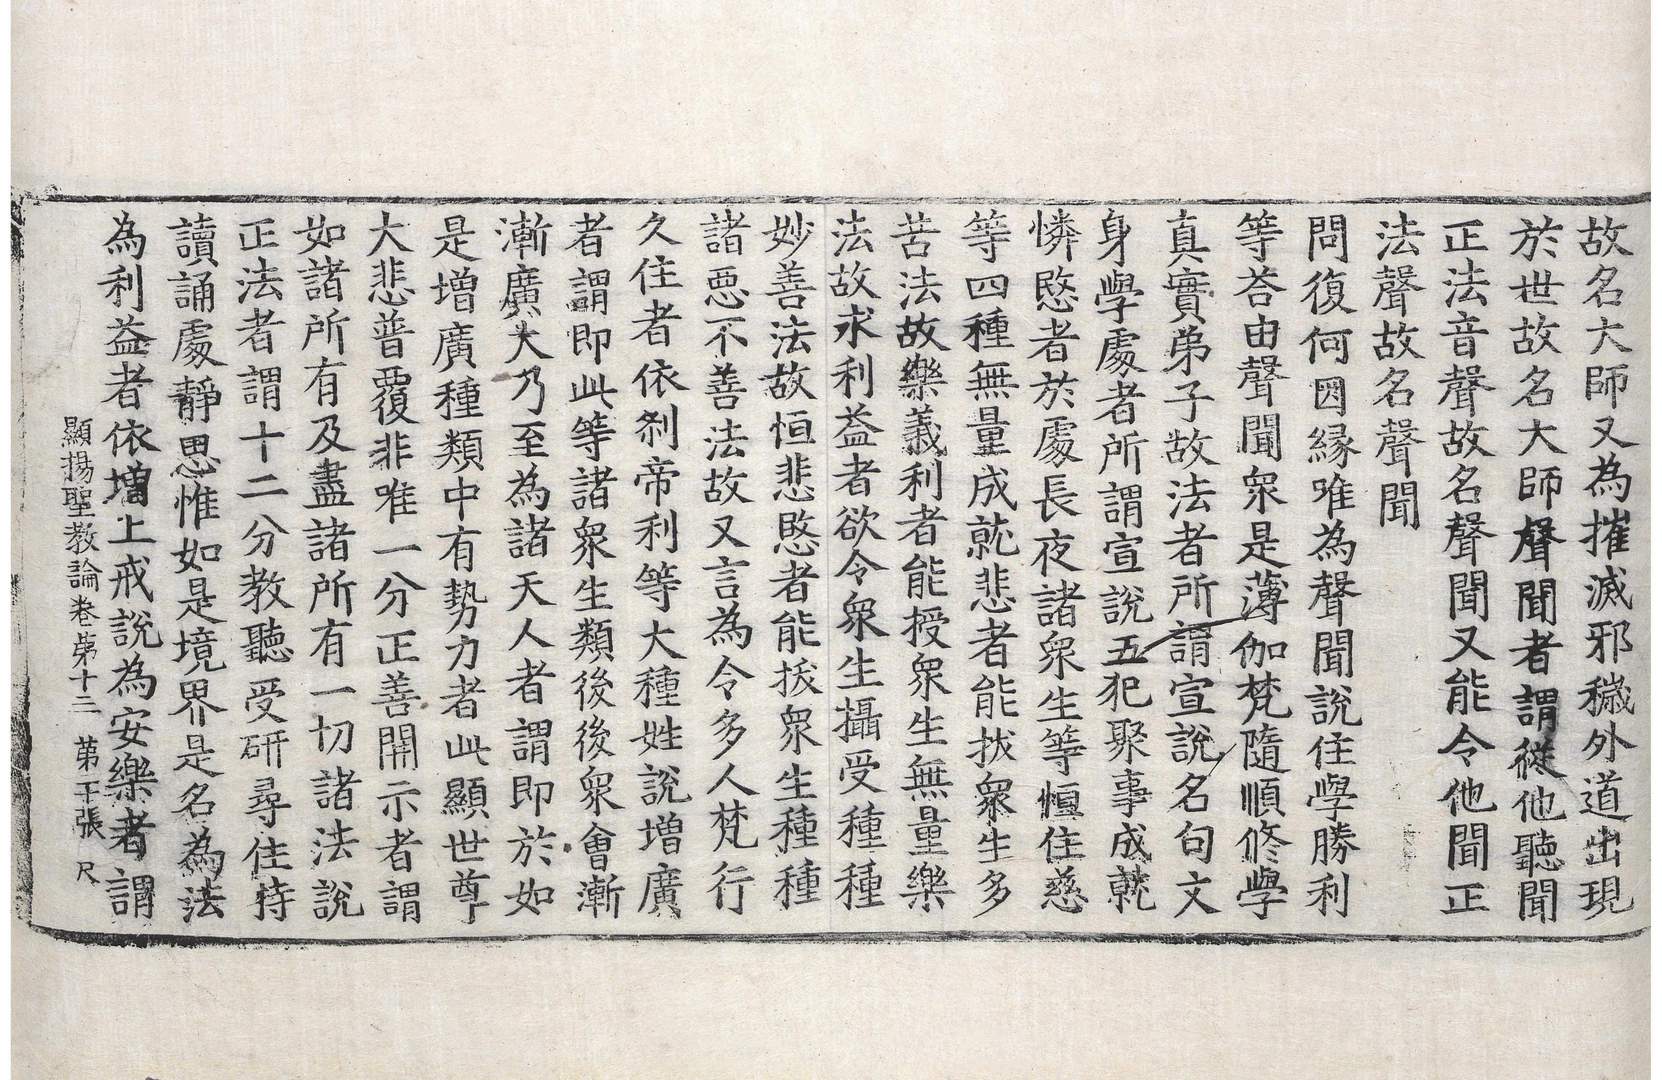 故名大師又為摧滅邪穢外道出現
於世故名大師聲聞者謂從他聽聞
正法音聲故名聲聞又能令他聞正
法聲故名聲聞
問復何因緣唯為聲聞說住學勝利
等荅由聲聞衆是薄伽梵隨順修學
真實弟子故法者所謂宣說名句文
身學處者所謂宣說五犯聚事成就
憐愍者於處長夜諸衆生等恒住慈
等四種無量成就悲者能拔衆生多
苦法故樂義利者能授衆生無量樂
法故求利益者欲令衆生攝受種種
妙善法故恒悲愍者能拔衆生種種
諸惡不善法故又言為令多人梵行
久住者依刹帝利等大種姓說增廣
者謂即此等諸衆生類後後衆會漸
漸廣大乃至為諸天人者謂即於如
是增廣種類中有勢力者此顯世尊
大悲普覆非唯一分正善開示者謂
如諸所有及盡諸所有一切諸法說
正法者謂十二分教聽受研尋住持
讀誦處靜思惟如是境界是名為法
為利益者依增上戒說為安樂者謂
顯揚聖教論卷第十三 第二十張 尺